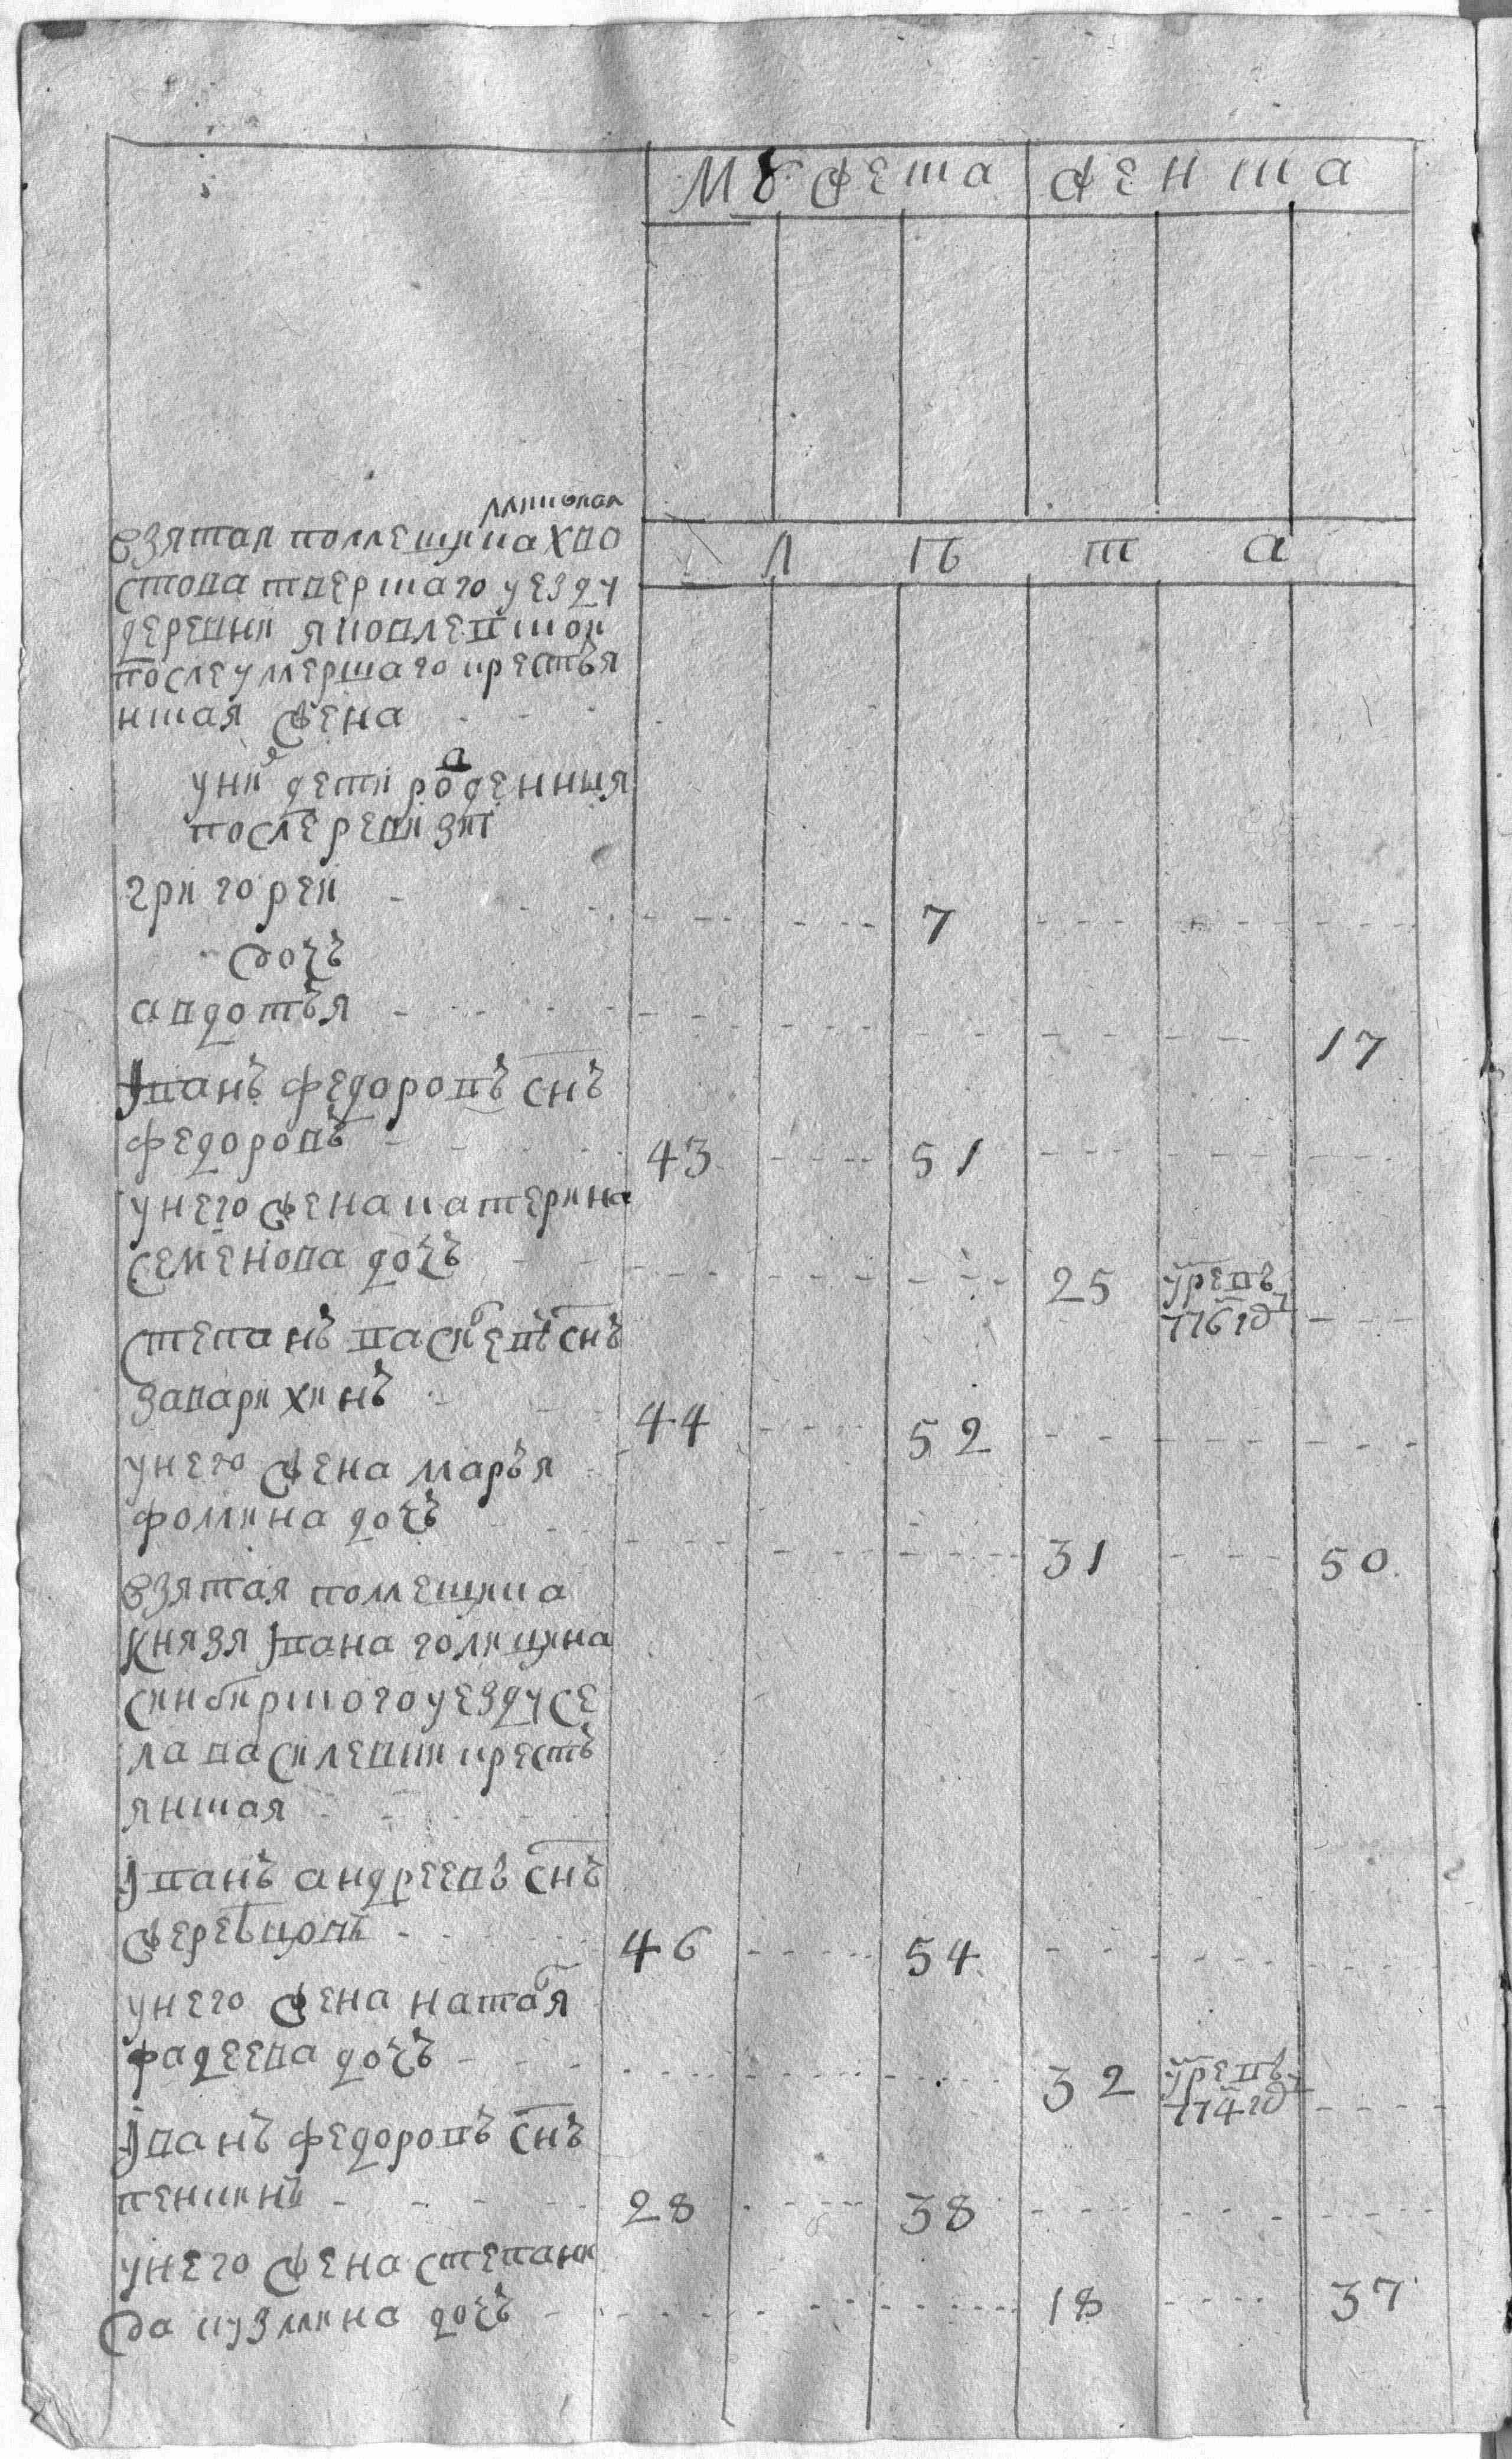 мужеска женска
майорка
взятая помещика хво
стова тверскаго уезду
деревни яковлевской
после умершаго крестья
нская жена
лѣта
у ней дети рожденныя
после ревизи
григорей - - - 7 - - -
дочь
авдотья - - - 17
Iванъ федоровъ снъ
федоровъ - - 43 - - - 51 - - -
у него жена катерина
семенова дочь - - - 25 умре въ
776 гд - - -
степанъ васильевъ снъ
заварихинъ - - 44 - - - 52 - - -
у него жена марья
фомина дочь - - - 31 - - - 50
взятая помещика
князя Iвана голицина
синбирского уезду се
ла василевки кресть
янская - - -
Iванъ андреевъ снъ
жеребцовъ - - 46 - - - 54 - - -
у него жена наталья
фадеева дочь - - - 32 умре въ
774 гд - - -
Iванъ федоровъ снъ
пенкинъ - - - 28 - - - 38 - - -
у него жена степани
да кузмина дочь - - - 18 - - - 37